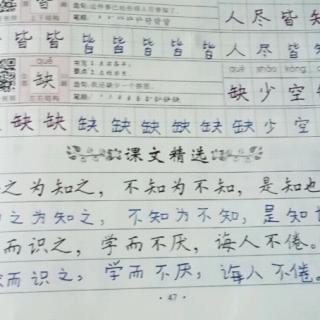 皆 皆 皆 皆 皆 皆 人 尽 皆 知
上下结构
quē shǎo kōng
缺 缺 少 空
左右结构
造句:我还缺少一个答案。
缺 缺 缺 缺 缺 缺 缺 缺 少 空
课文精选
之为知之，不知为不知，是知也
之为知之，不知为不知，是知
而识之，学而不厌，诲人不倦。
而识之，学而不厌，诲人不倦。
·47·